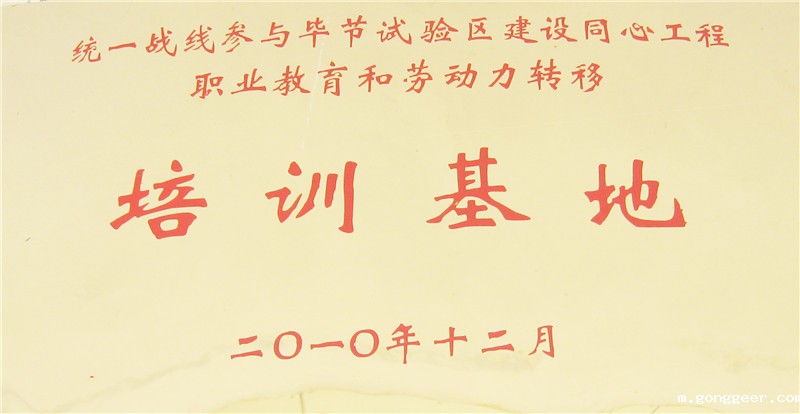 统一战线参与毕节试验区建设同心工程
职业教育和劳动力转移
培训基地
二〇一〇年十二月
m.gonggeer.com